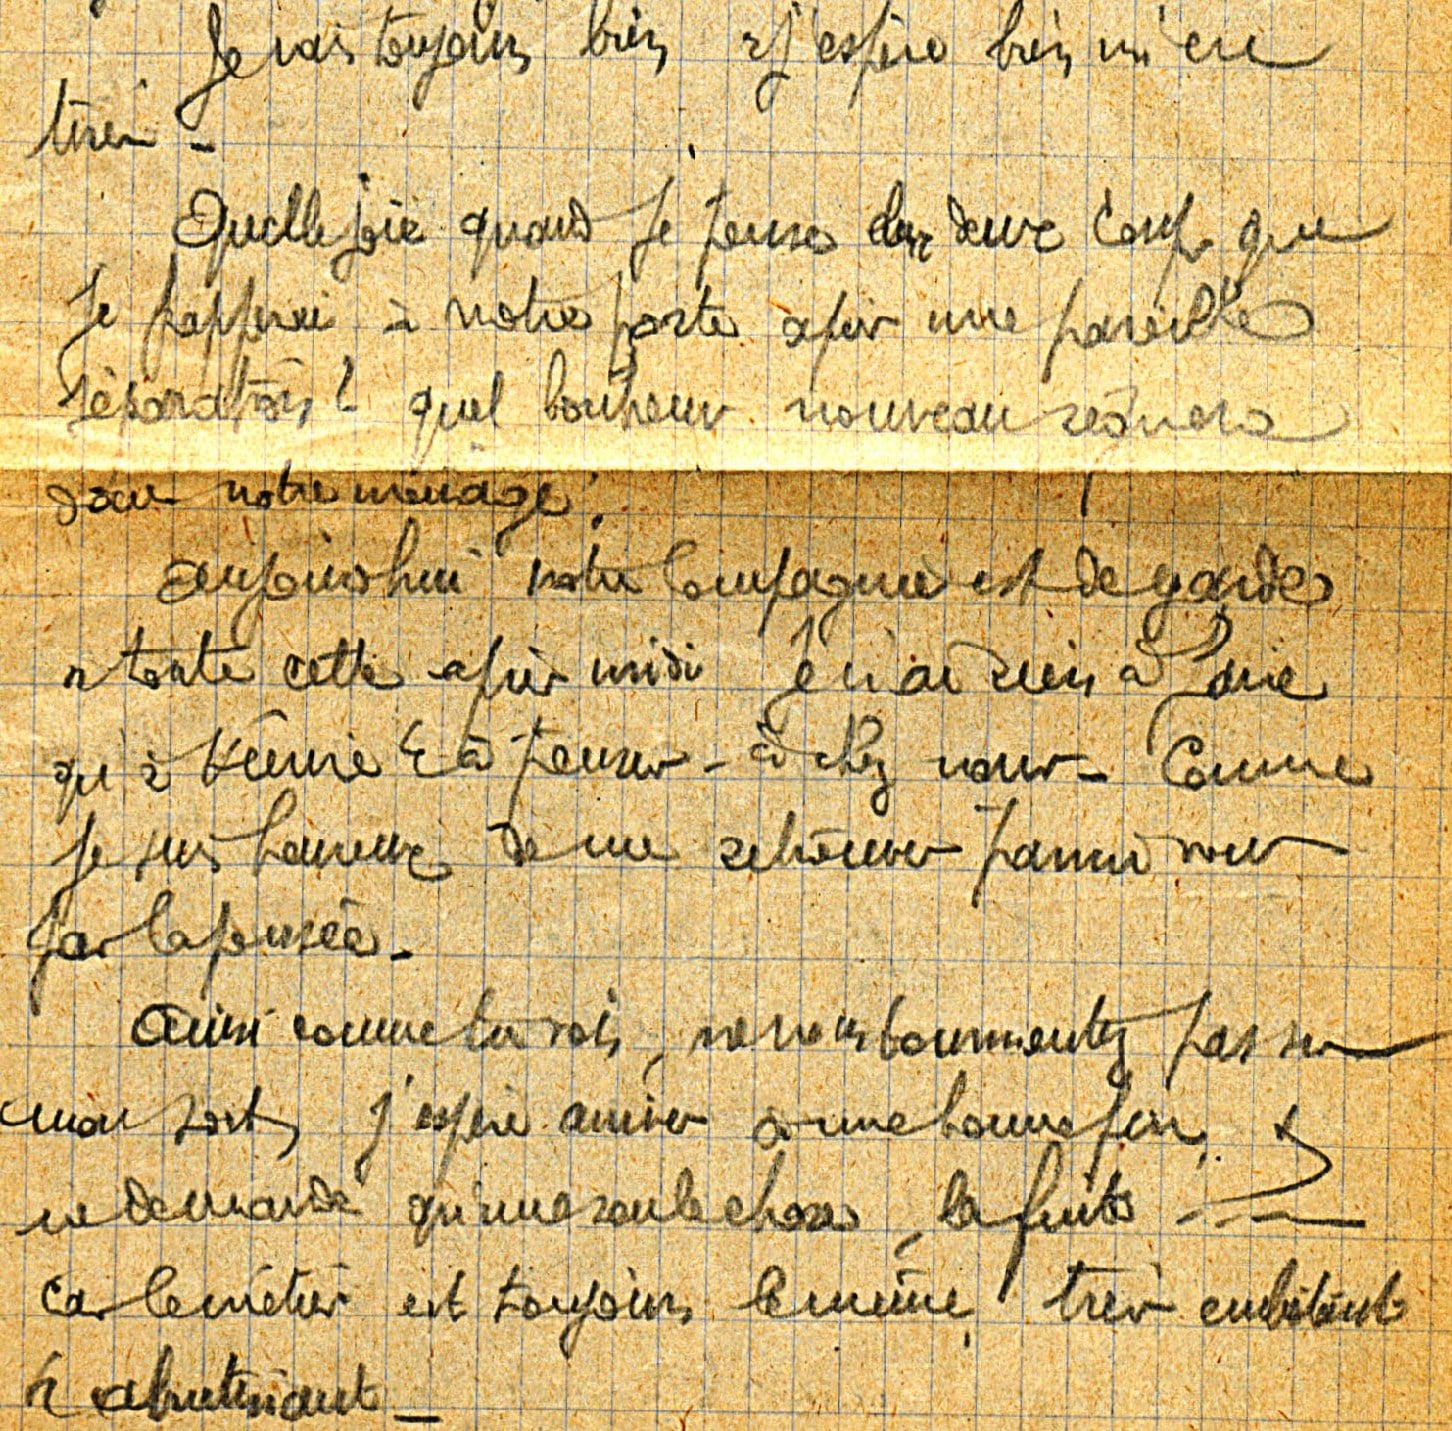 Je vais toujours bien et j'espère bien m'en
tirer -
Quelle joie quand je pense aux deux coups que
je frapperai à notre porte après une pareille
séparation ! quel bonheur nouveau règnera
dans notre ménage.
aujourd'hui notre Compagnie est de garde
et toute cette après midi je n'ai rien à faire
qu'à t'écrire & à penser - à chez nous - Comme
je suis heureux de me retrouver parmi vous
par la pensée -
Ainsi comme tu vois, ne vous tourmentez pas sur
mon sort, j'espère arriver à une bonne fin, &
ne demande qu'une seule chose, la fuite
car le métier est toujours le même, très embêtant
& abrutissant -